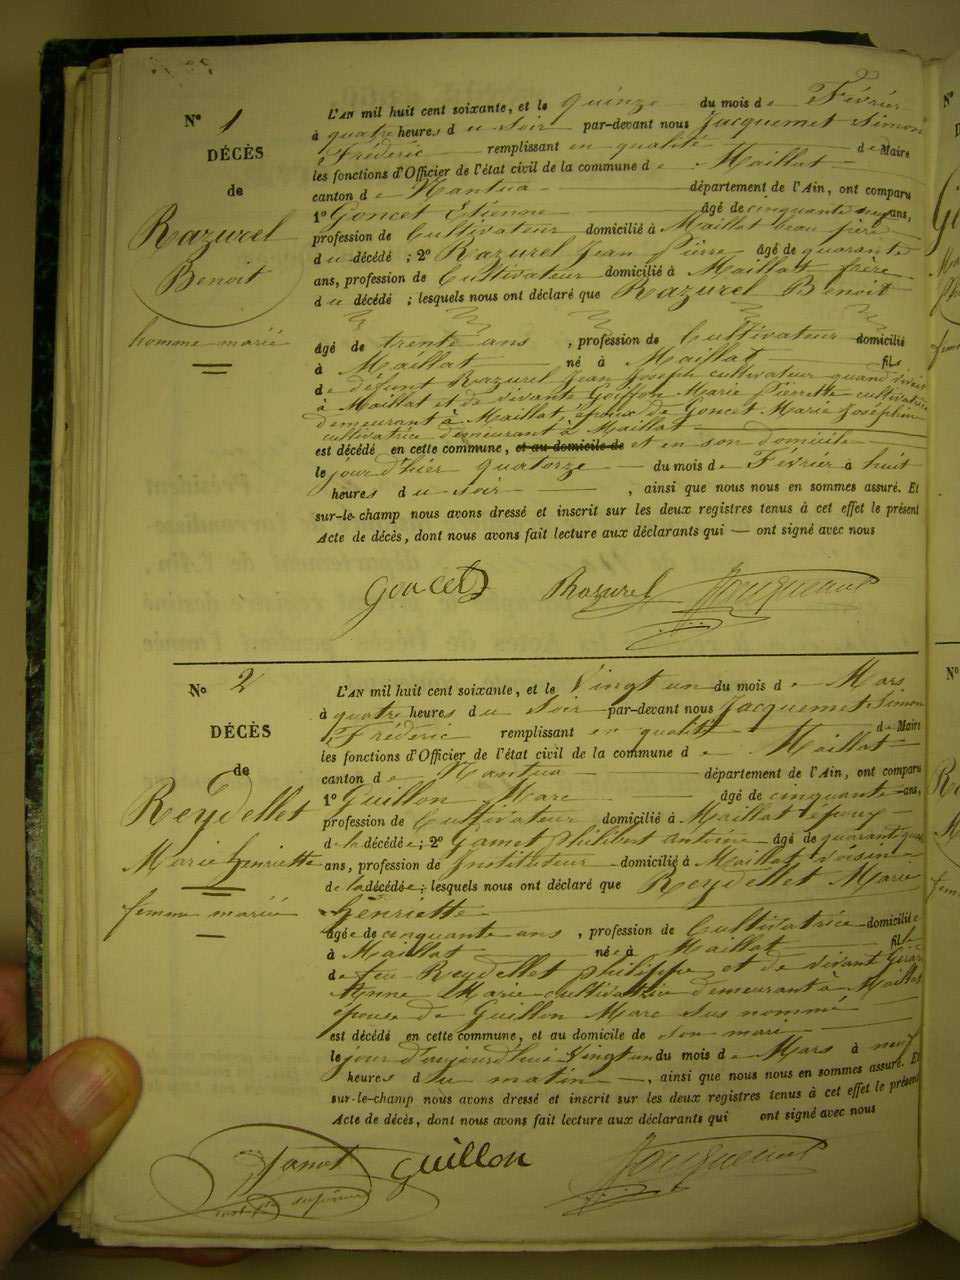 N° 1
DÉCÈS
de
Razurel
Benoit
homme marié
L'AN mil huit cent soixante, et le quinze du mois de Février
à quatre heures du soir par-devant nous Jacquemet Simon
Fréderic remplissant en qualité de Maire
les fonctions d'Officier de l'état civil de la commune de Maillat
canton de Nantua département de l'Ain, ont comparu
1° Goncet Etienne âgé de cinquante ans,
profession de Cultivateur domicilié à Maillat beau frère
du décédé ; 2° Razurel Jean Pierre âgé de quarante
ans, profession de Cultivateur domicilié à Maillat frère
du décédé ; lesquels nous ont déclaré que Razurel Benoit
âgé de trente ans , profession de Cultivateur domicilié
à Maillat né à Maillat fils
de défunt Razurel Jean Joseph cultivateur quand vivait
à Maillat et de vivante Goiffon Marie Pierrette cultivatrice
demeurant à Maillat, époux de Goncet Marie Joséphine
cultivatrice demeurant à Maillat
est décédé en cette commune, et au domicile de et en son domicile
le jour d'hier quatorze du mois de Février à huit
heures du soir , ainsi que nous nous en sommes assuré. Et
sur-le-champ nous avons dressé et inscrit sur les deux registres tenus à cet effet le présent
Acte de décès, dont nous avons fait lecture aux déclarants qui — ont signé avec nous
Goncet Razurel
N° 2
DÉCÈS
de
Reydellet
Marie henriette
femme mariée
L'AN mil huit cent soixante, et le Vingt un du mois de Mars
à quatre heures du soir par-devant nous Jacquemet Simon
Fréderic remplissant en qualité de Maire
les fonctions d'Officier de l'état civil de la commune de Maillat
canton de Nantua département de l'Ain, ont comparu
1° Guillon Marc âgé de cinquante ans,
profession de Cultivateur domicilié à Maillat époux
de la décédée ; 2° Philibert antoine âgé de quarante quatre
ans, profession de Instituteur domicilié à Maillat voisin
de la décédée ; lesquels nous ont déclaré que Reydellet Marie
henriette
âgée de cinquante ans , profession de Cultivatrice domiciliée
à Maillat née à Maillat fille
de feu Reydellet philippe et de vivante
Anne Marie cultivatrice demeurant à Maillat
épouse de Guillon Marc sus nommé
est décédé en cette commune, et au domicile de son mari
le jour d'aujourd'hui Vingt un du mois de Mars à neuf
heures du matin , ainsi que nous nous en sommes assuré. Et
sur-le-champ nous avons dressé et inscrit sur les deux registres tenus à cet effet le présent
Acte de décès, dont nous avons fait lecture aux déclarants qui ont signé avec nous
Guillon